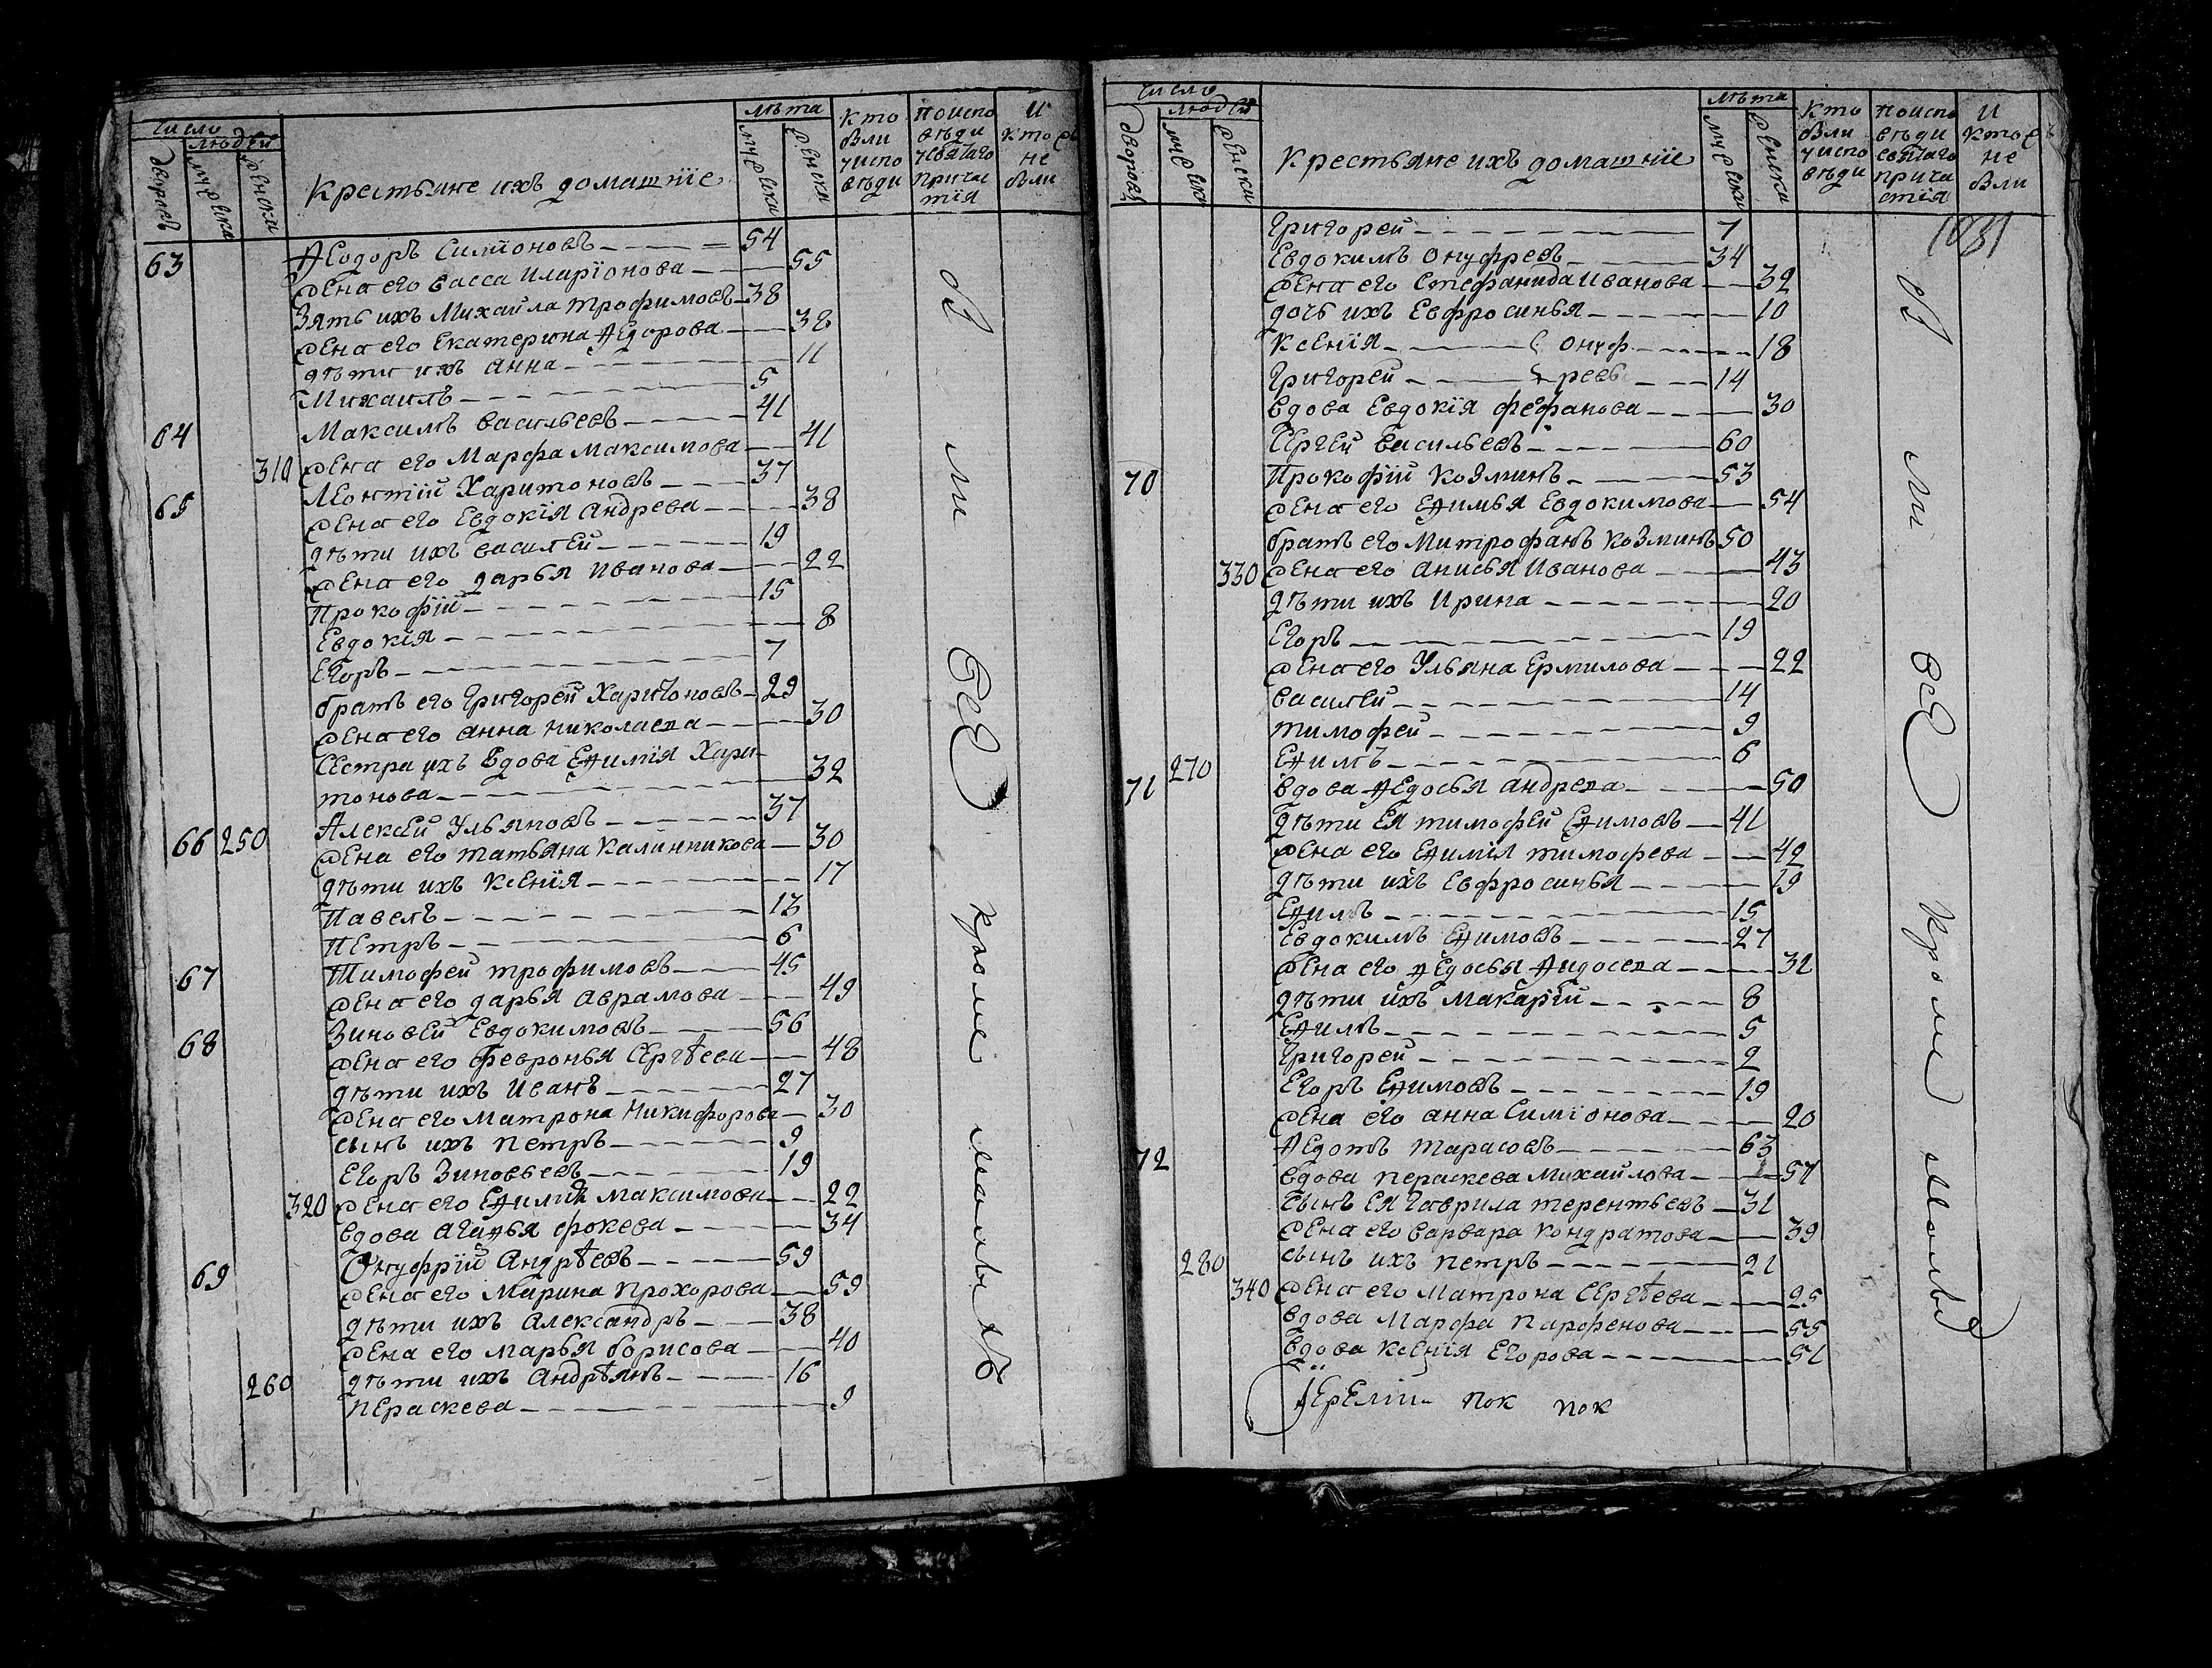 Число
Людей
дворовъ
мужеска
женски
Крестьяне ихъ домашнїе
Лѣта
мужеска
женски
Кто были у испо вѣди
По испо вѣди у святаго прича тїя
И кто не были
63 Ѳеодоръ Симїоновъ 54
Жена его Васса Иларїонова 55
Зять ихъ Михаила Трофимовъ 38
Жена его Екатерина Ѳедорова 38
дѣти ихъ Анна 11
Михаилъ 5
64 Максимъ Васильевъ 41
310 Жена его Марфа Максимова 41
65 Леонтїй Харитоновъ 37
Жена его Евдокїя Андрева 38
дѣти ихъ Василей 19
Жена его дарья Иванова 22
Прокофїй 15
Евдокїя 8
Егоръ 7
братъ его Григорей Харитоновъ 29
Жена его Анна Николаева 30
Сестра ихъ вдова Еѳимїя Хари-
тонова 32
66 250 Алексей Ульяновъ 37
Жена его Татьяна Калинникова 30
дѣти ихъ Ксенїя 17
Павелъ 13
Петръ 6
67 Тимофей Трофимовъ 45
Жена его дарья Аврамова 49
68 Зиновей Евдокимовъ 56
Жена его Февронья Сергѣева 48
дѣти ихъ Иванъ 27
Жена его Матрона Никифорова 30
сынъ ихъ Петръ 9
Егоръ Зиновьевъ 19
320 Жена его Еѳимия Максимова 22
вдова Агаѳья Фокева 34
69 Онуфрїй Андрѣевъ 59
Жена его Марина Прохорова 59
дѣти ихъ Александръ 38
Жена его Марья борисова 40
260 дѣти ихъ Андрѣянъ 16
Пераскева 9
Были все кроме малыхъ
Число
Людей
дворовъ
мужеска
женски
Крестьяне ихъ домашнїе
Лѣта
мужеска
женски
Кто были у испо вѣди
По испо вѣди святаго прича стїя
И кто не были
Григорей 7
Евдокимъ Онуфревъ 34
Жена его Стефанида Иванова 32
дочь ихъ Евфросинья 10
Ксенїя Онуф 18
Григорей ревъ 14
вдова Евдокїя Фефанова 30
Сергей Васильевъ 60
70 Прокофїй Козминъ 53
Жена его Еѳимья Евдокимова 54
братъ его Митрофанъ Козминъ 50
330 Жена его Анисья Иванова 43
дѣти ихъ Ирина 20
Егоръ 19
Жена его Ульяна Ермилова 22
Василей 14
Тимофей 9
270 Еѳимъ 6
71 вдова Ѳедосья Андрева 50
дѣти ея Тимофей Еѳимовъ 41
Жена его Еѳимїя Тимофева 42
дѣти ихъ Евфросинья 19
Еѳимъ 15
Евдокимъ Еѳимовъ 27
Жена его Ѳедосья Ѳидосева 32
дѣти ихъ Макарїй 8
Еѳимъ 5
Григорей 2
Егоръ Еѳимовъ 19
Жена его Анна Симїонова 20
72 Ѳедотъ Тарасовъ 63
вдова Пераскева Михайлова 57
Сынъ ея Гаврила Терентьевъ 31
Жена его Варвара Кондратова 39
280 сынъ ихъ Петръ 21
340 Жена его Матрона Сергѣева 25
вдова Марфа Парфенова 55
вдова Ксенїя Егорова 51
Были все кроме малыхъ